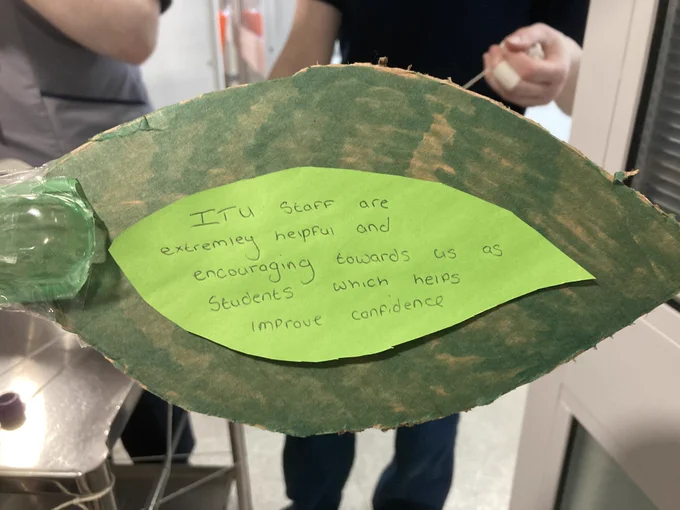 ITU Staff are
extremley helpful and
encouraging towards us as
Students which helps
improve confidence